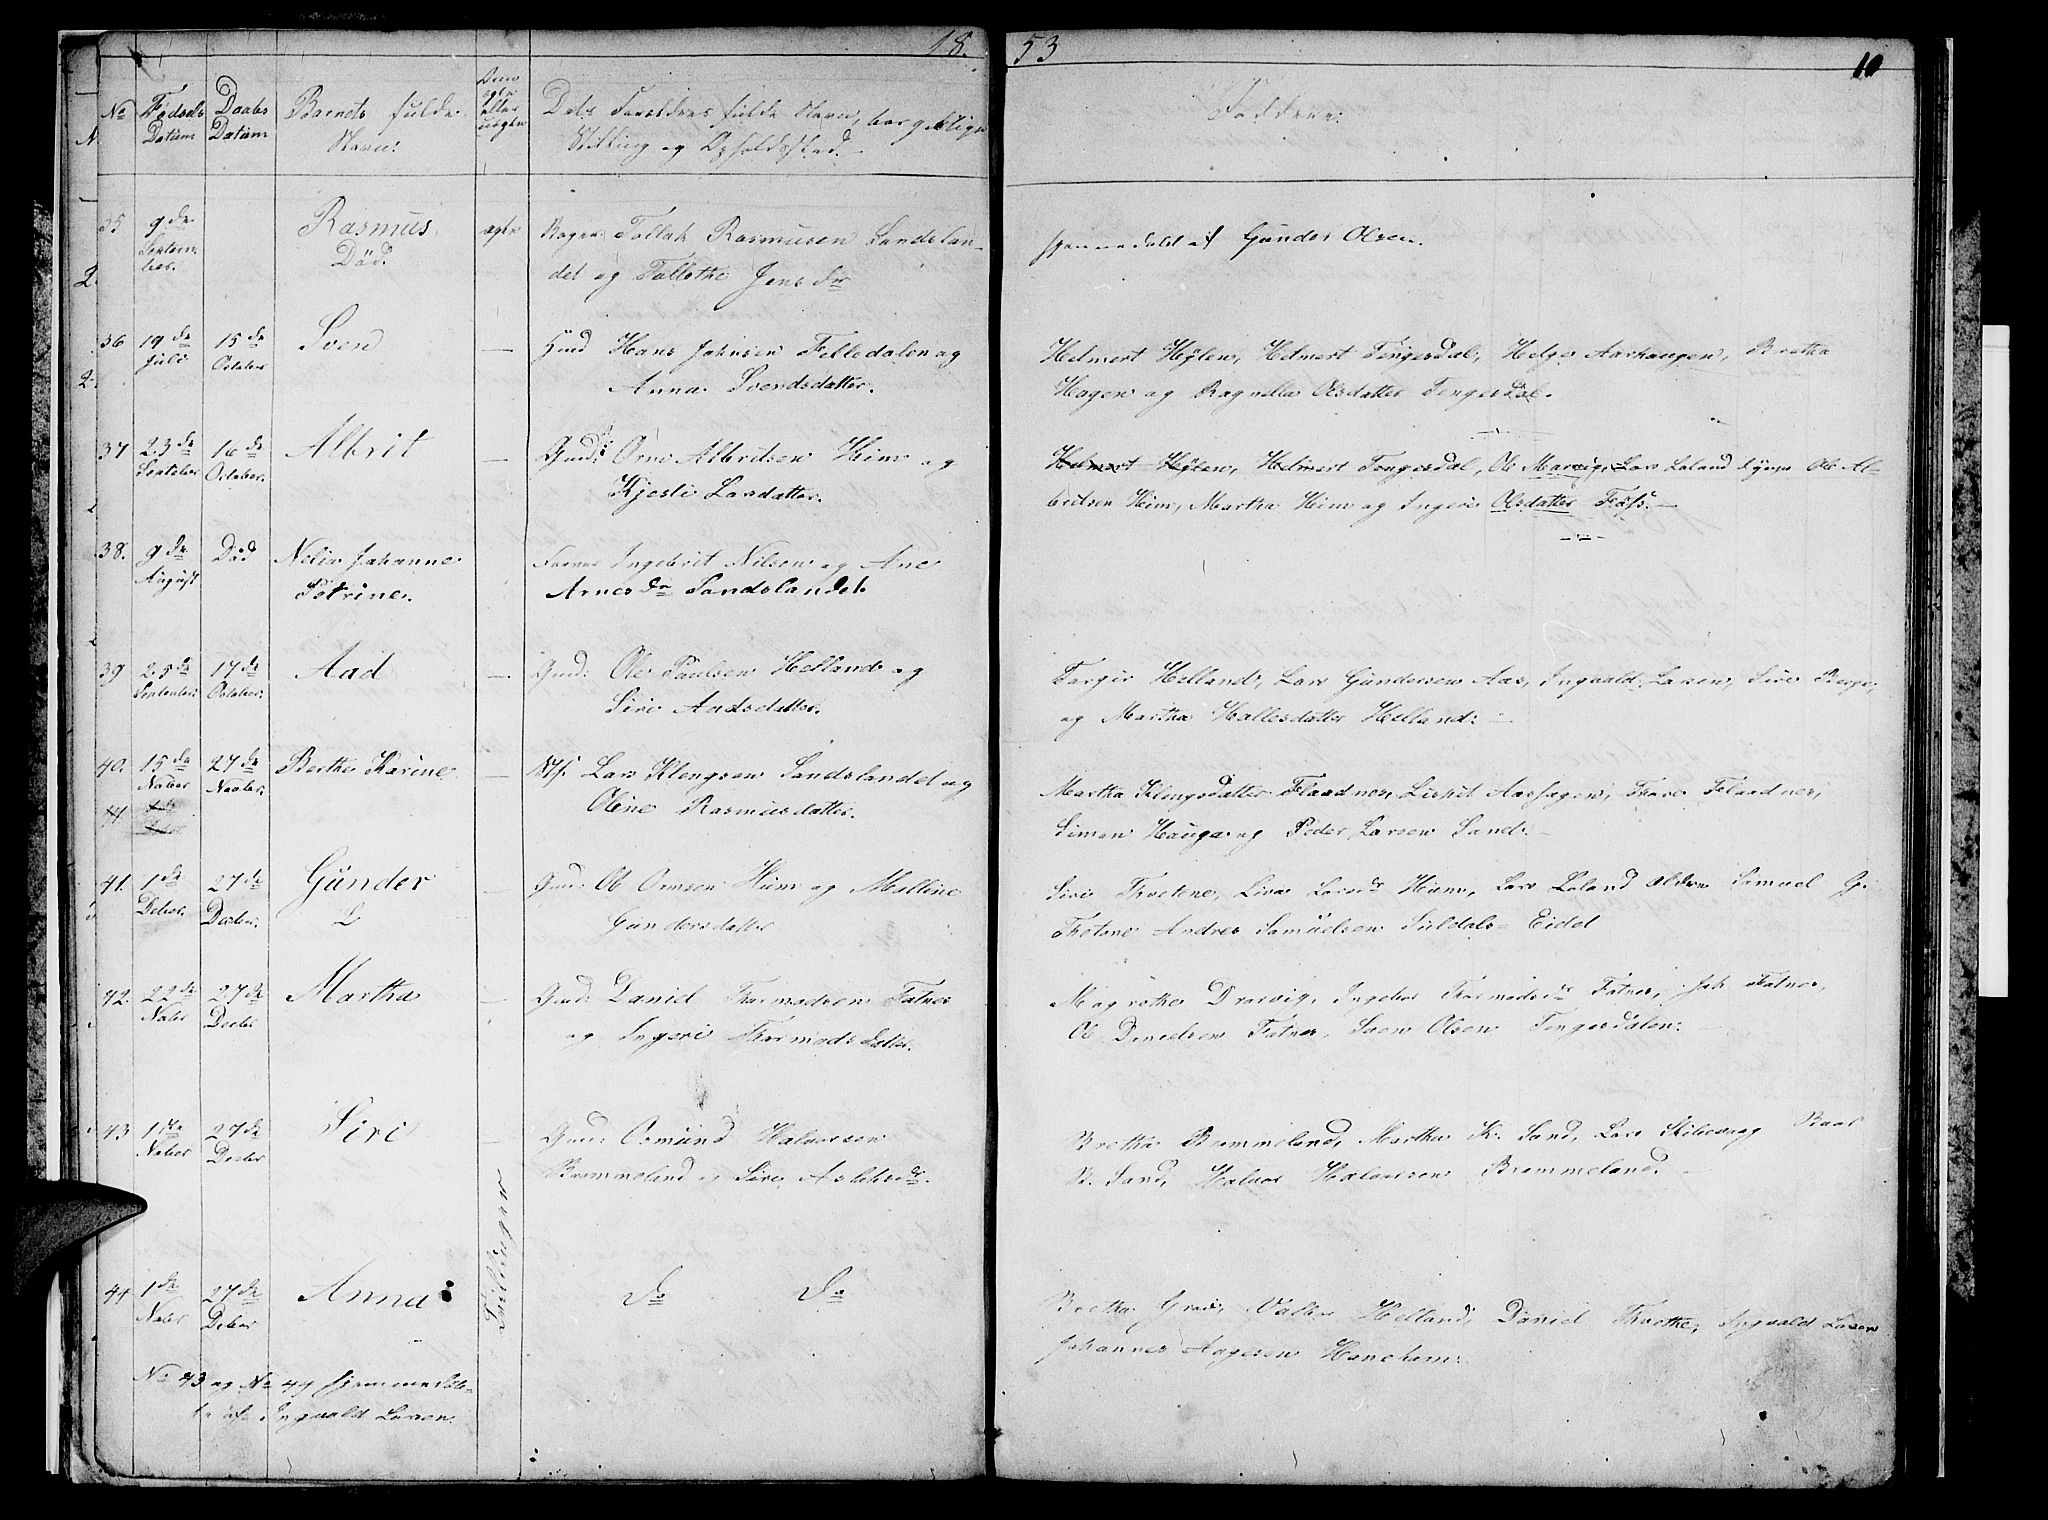 1853
10
No Fødsels Datum Daabs Datum Barnets fulde Navn: Om ægte eller uægte Dets Forældres fulde Navn, borgerlige
Stilling og Opholdssted.
Faddere:
35 9de Septembr. Rasmus Død. ægte Tollak Rasmusen Sandslan-
det og Jensdr
hjemmedøbt af Gunder Olsen.
36 19de Juli 15de October Sven — Hans Johnsen Felledalen og
Anna Svendsdatter.
Helmert Hylen, Helmert Tengesdal, Helge Aarhaugen, Bretha
Hagen og Ragnilla Olsdatter Tengesdal.
37 23de Septeber 16de October. Albrit — Gmd: Orm Albritsen Heim og
Kjesti Larsdatter.
Helmert Hylen, Helmert Tengesdal, Ole Marvig, Lars Loland Ole Al-
britsen Heim, Martha Heim og Ingeri Olsdatter Fos.
38. 9de August Død Nelia Johanne
Petrine.
Ingebrit Nilsen og Ane
Arnesdr Sandslandet.
39 25de September 17de October. Aad — Gmd: Ole Paulsen Helland og
Siri Aadsdatter.
Torger Helland, Lars Gundersen Aas, Ingvald Larsen, Siri Berge,
og Martha Hallesdatter Helland:
40. 15de Nober 27de Noober. Berthe Karine — Lars Klengsen Sandslandet og
Oline Rasmusdatter.
Martha Klengsdatter Flaadnes, Lispet Aashagen, Thore Flaadnes,
Simon Hauga og Peder Larsen Sand.
41
41. 1de Deber. 27de Decber. Gunder — Gmd: Ole Ormsen Heim og Malline
Gundersdatter
Siri Thvetene, Liva Larsdr Heim, Lars Loland Samuel G.
Andres Samuelsen Suldals-Eidet
42. 22de Nober 27de Decber Martha — Gmd: Daniel Thormodsen Fatnes
og Ingeri Thormodsdatter.
Magrethe Drarvig, Ingebor Thormodsdr Fatnes, Fatnes,
Ole Danielsen Fatnes, Sven Olsen Tengesdalen:
43 1de Nober 27de Decber Siri — Gmd: Osmund Halvorsen
Brommeland og Siri Aslaksdr.
Bretha Brommeland, Martha K. Sand, Lars Skibevaag
B. Sand, Halvor Halvorsen Brommeland.
Tvillinger
44 1de Nober 27de Deber Anna: do do
Bretha Helland, Daniel Thvethe, Ingvald Larsen
Johannes Aagesen Haneham:
No 43 og No 44 hjemmedøb-
te af Ingvald Larsen.